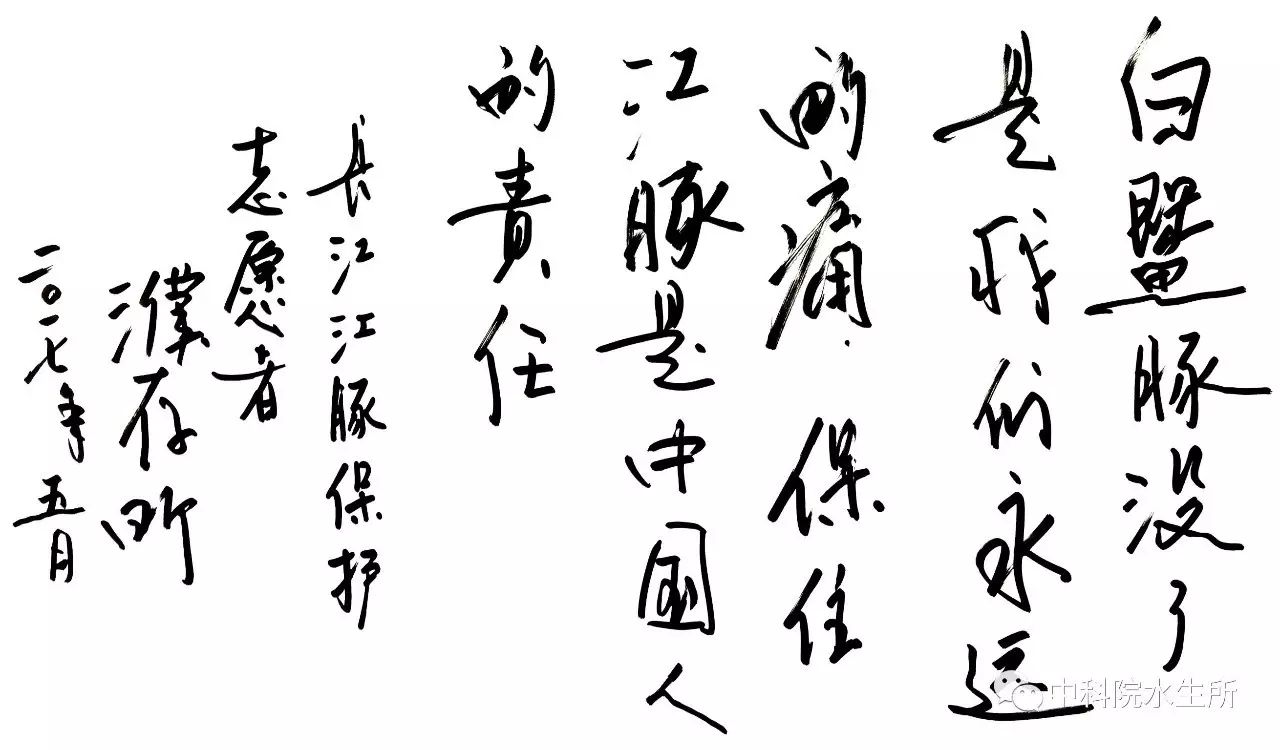 白鱀豚没了
是我们永远
的痛 保住
江豚是中国人
的責任
長江江豚保护
志愿者
濮存昕
二〇一七年五月
中科院水生所